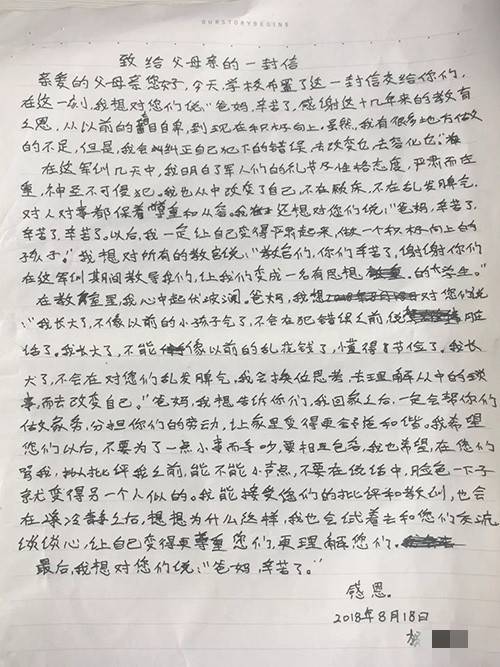 OURSTORYBEGINS
致给父母亲的一封信
亲爱的父母亲您好,今天,学校布置了这一封信交给你们,
在这一刻,我想对您们说:"爸妈,辛苦了,感谢这十几年来的教育
之恩,从以前的自卑,到现在积极向上,虽然,我有很多地方做
的不足,但是,我会纠正自己犯下的错误,去改变它,去容化它。"
在这军训几天中,我明白了军人们的礼节及性格态度,严肃而庄
重,神圣不可侵犯。我也从中改变了自己,不在颓废,不在乱发脾气,
对人对事都保着尊重和从容。我还想对您们说:"爸妈,辛苦了,
辛苦了,辛苦了。以后,我一定让自己变得严肃起来,做一个积极向上的
孩子。"我想对所有的教官说:"教官们,你们辛苦了,谢谢你们
在这军训期间教导我们,让我们变成一名有思想的大学生。"
在教室里,我心中起伏波澜。爸妈,我想对您们说
:"我长大了,不像以前的小孩子气了,不会在犯错误之前说脏
话了。我长大了,不能像以前的乱花钱了,懂得了节俭了。我长
大了,不会在对您们乱发脾气,我会换位思考,去理解从中的琐
事,而去改变自己。"爸妈,我想告诉你们,我回家之后,一定会帮你们
做家务,分担你们的劳动,让家里变得更和谐。我希望
您们以后,不要为了一点小事而争吵,要相互包容,我也希望,在您们
骂我,批评我之前,能不能小节点,不要在说话中,脸色一下子
就变得另一个人似的。我能接受您们的批评和教训,也会
在冷静之后,想想为什么这样,我也会试着去和您们交流
谈谈心,让自己变得更尊重您们,更理解您们。
最后,我想对您们说:"爸妈,辛苦了。"
感恩.
2018年8月18日